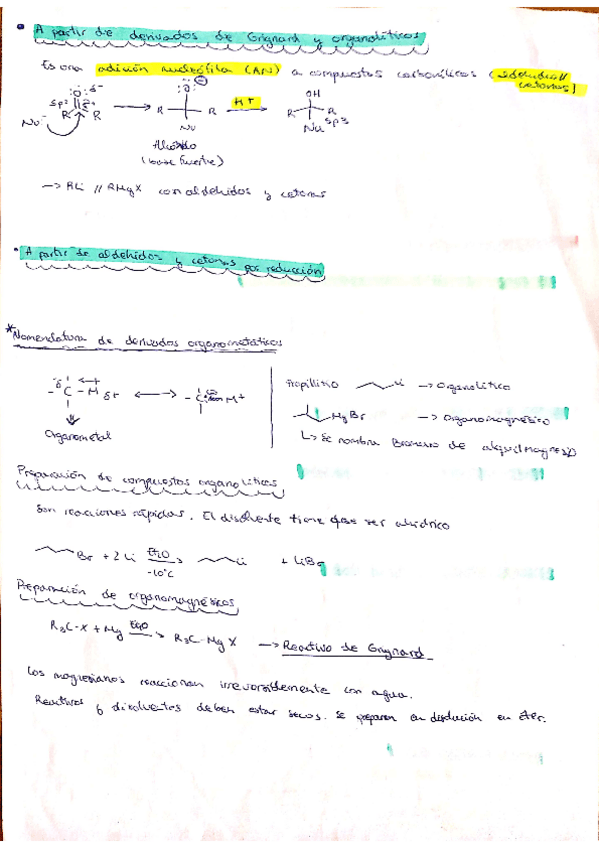 • A partir de derivados de Grignard y organolíticos
Es una adición nucleófila (AN) a compuestos carbonílicos (aldehidos//
cetonas)
O δ-
sp² δ+
R R
Nu-
O
R R
Nu
Alcóxido
(base fuerte)
H+
OH
R R
Nu sp3
-> RLi // RMgX con aldehidos y cetonas
• A partir de aldehidos y cetonas por reducción
*Nomenclatura de derivados organometálicos
δ- -C-M δ+ <-> -C M+
Organometal
Propillitio Li -> Organolítico
MgBr -> Organomagnésico
L> se nombra Bromuro de alquilmagnesio
Preparación de compuestos organolíticos
Son reacciones rápidas. El disolvente tiene que ser anhídrico
Br + 2Li Et2O Li + LiBr
-10°C
Preparación de organomagnésicos
R3C-X + Mg Et2O R3C-MgX -> Reactivo de Grignard
Los magnesianos reaccionan irreversiblemente con agua.
Reactivos y disolventes deben estar secos. Se preparan en disolución en éter.